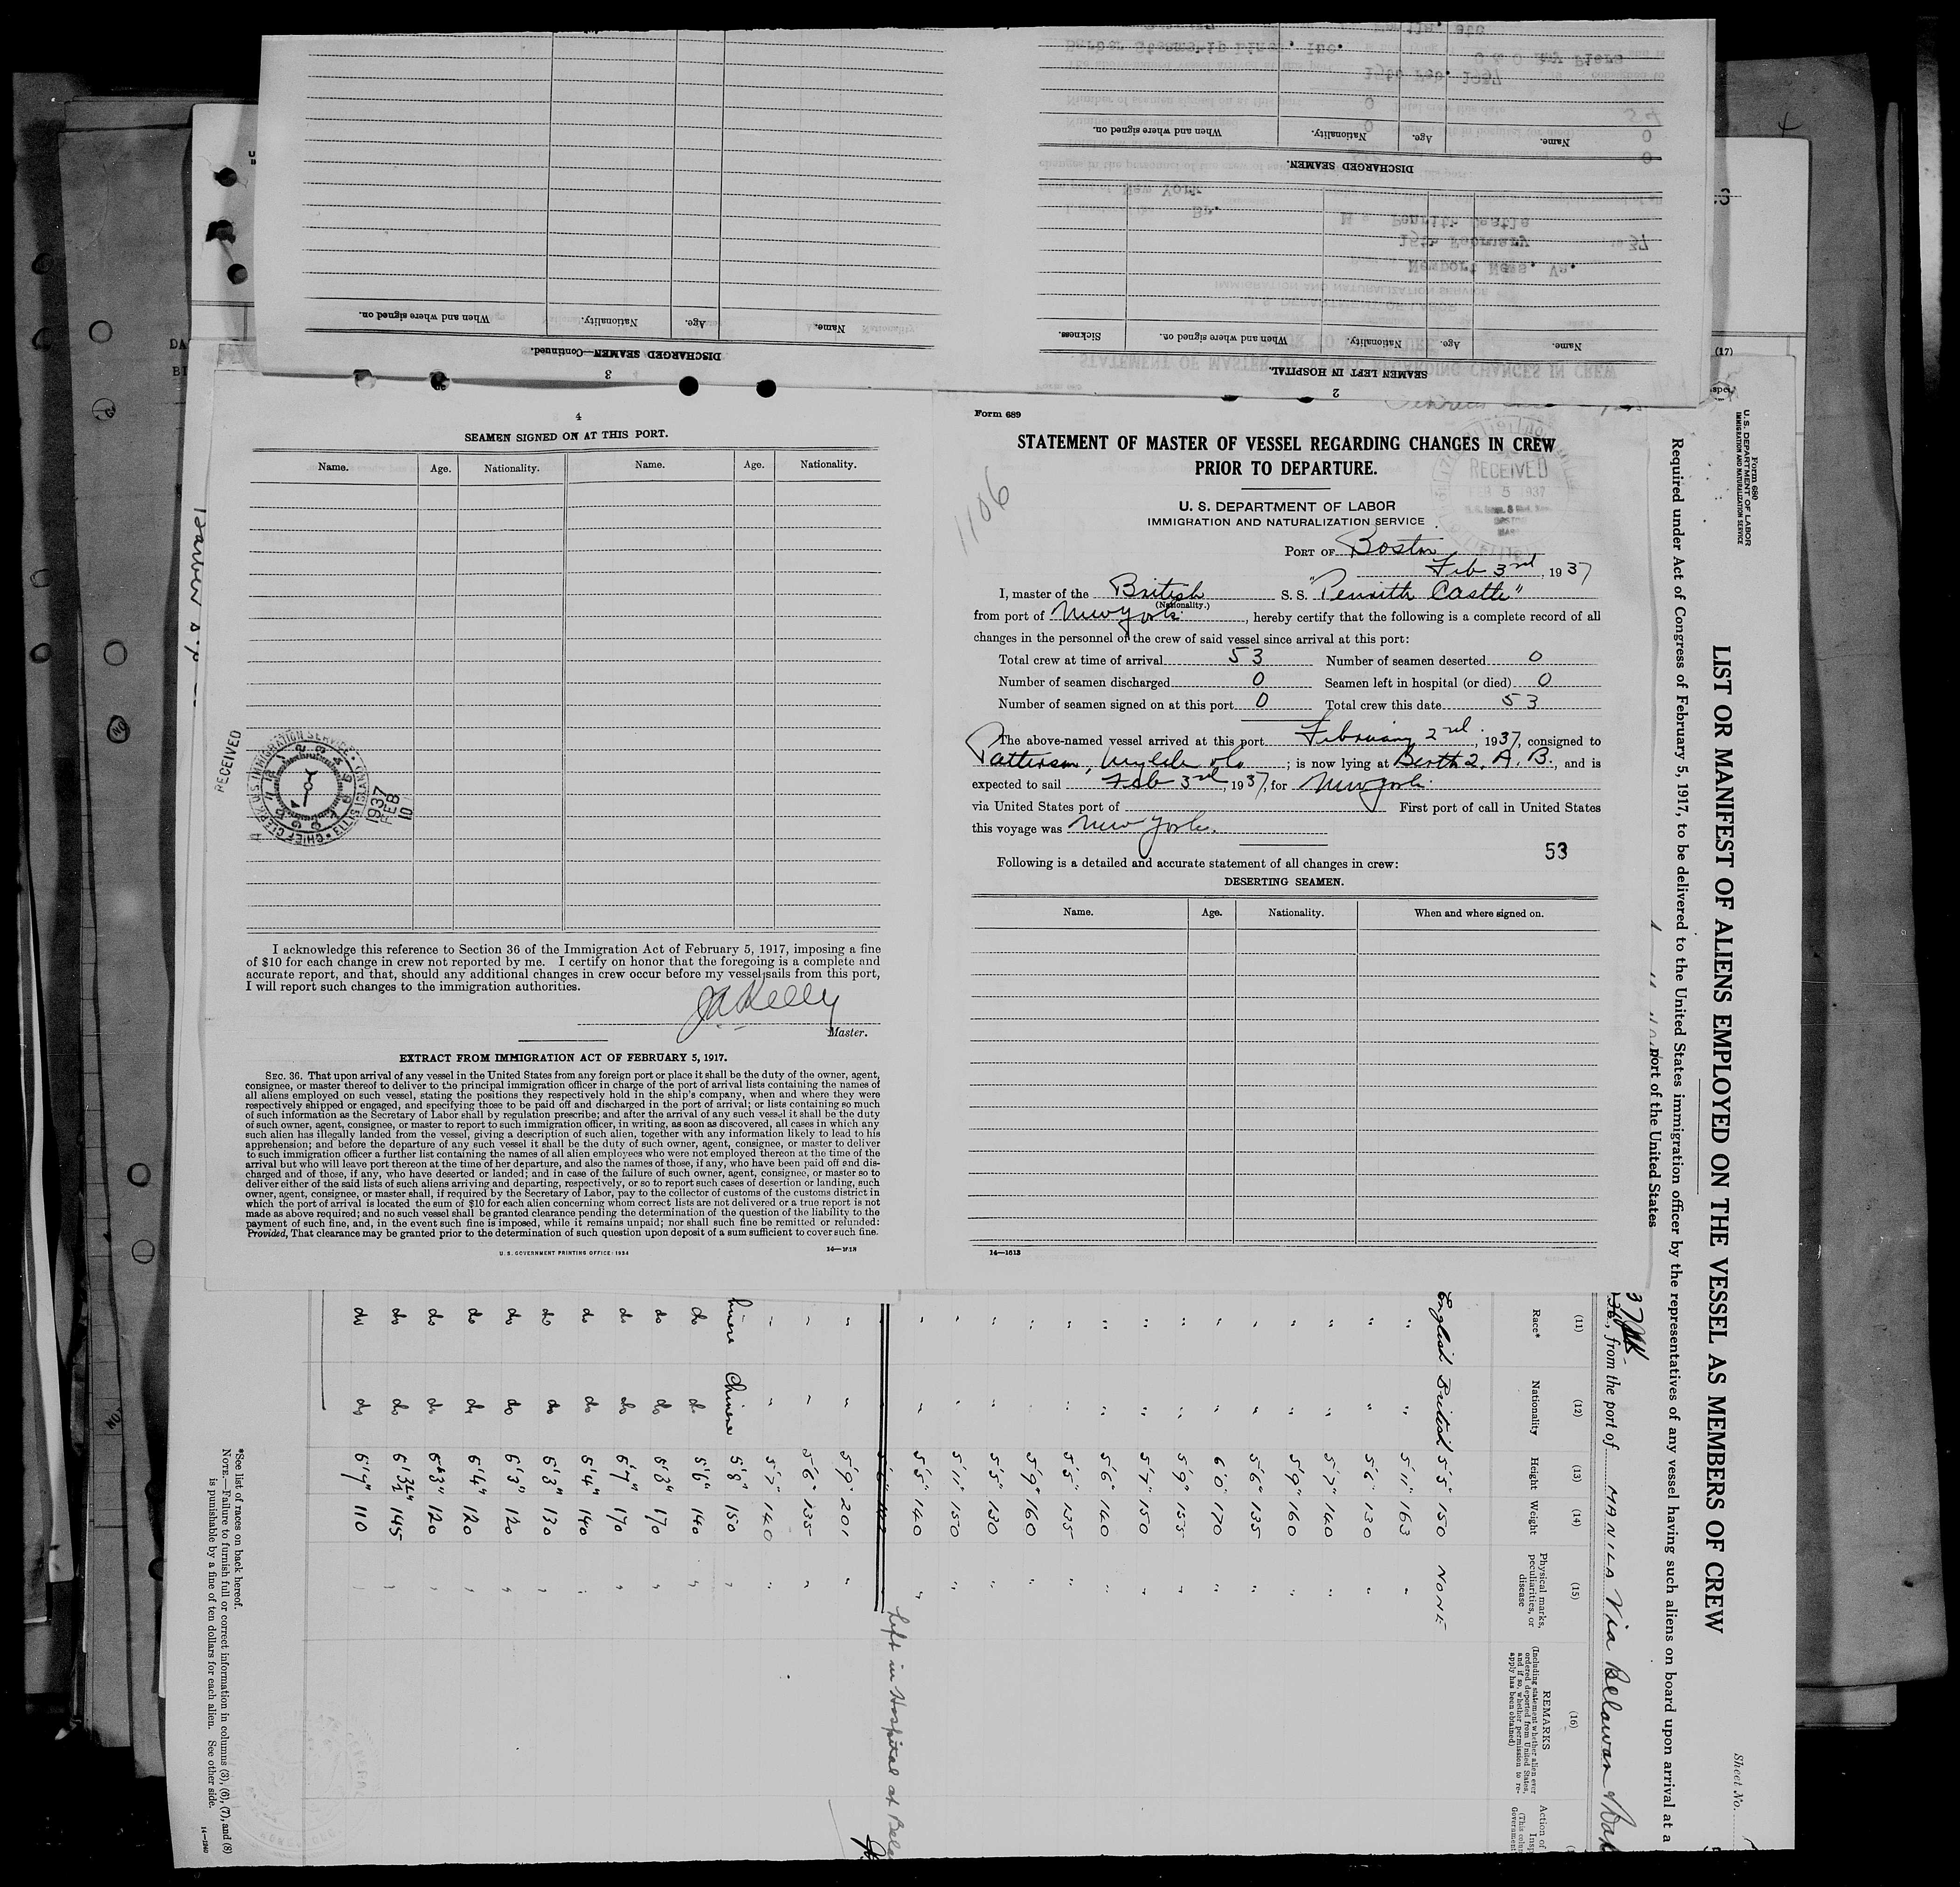 DISCHARGED SEAMEN—Continued.
3
Name.
Age.
Nationality.
When and where signed on.
2
SEAMEN LEFT IN HOSPITAL.
Name.
Age.
Nationality.
When and where signed on.
Sickness.
DISCHARGED SEAMEN.
Name.
Age.
Nationality.
When and where signed on.
Newport News, Va.
15th February 37
Penrith Castle
Br.
New York
15th Feb. 1937
C & O Rwy Piers
Barber Steamship Lines, Inc.
4
SEAMEN SIGNED ON AT THIS PORT.
Name. Age. Nationality. Name. Age. Nationality.
RECEIVED
CHIEF CLERK, U.S. IMMIGRATION SERVICE • ELLIS ISLAND
1937
FEB
10
I acknowledge this reference to Section 36 of the Immigration Act of February 5, 1917, imposing a fine
of $10 for each change in crew not reported by me. I certify on honor that the foregoing is a complete and
accurate report, and that, should any additional changes in crew occur before my vessel sails from this port,
I will report such changes to the immigration authorities.
JA Kelly
Master.
EXTRACT FROM IMMIGRATION ACT OF FEBRUARY 5, 1917.
SEC. 36. That upon arrival of any vessel in the United States from any foreign port or place it shall be the duty of the owner, agent,
consignee, or master thereof to deliver to the principal immigration officer in charge of the port of arrival lists containing the names of
all aliens employed on such vessel, stating the positions they respectively hold in the ship's company, when and where they were
respectively shipped or engaged, and specifying those to be paid off and discharged in the port of arrival; or lists containing so much
of such information as the Secretary of Labor shall by regulation prescribe; and after the arrival of any such vessel it shall be the duty
of such owner, agent, consignee, or master to report to such immigration officer, in writing, as soon as discovered, all cases in which any
such alien has illegally landed from the vessel, giving a description of such alien, together with any information likely to lead to his
apprehension; and before the departure of any such vessel it shall be the duty of such owner, agent, consignee, or master to deliver
to such immigration officer a further list containing the names of all alien employees who were not employed thereon at the time of the
arrival but who will leave port thereon at the time of her departure, and also the names of those, if any, who have been paid off and dis-
charged and of those, if any, who have deserted or landed; and in case of the failure of such owner, agent, consignee, or master so to
deliver either of the said lists of such aliens arriving and departing, respectively, or so to report such cases of desertion or landing, such
owner, agent, consignee, or master shall, if required by the Secretary of Labor, pay to the collector of customs of the customs district in
which the port of arrival is located the sum of $10 for each alien concerning whom correct lists are not delivered or a true report is not
made as above required; and no such vessel shall be granted clearance pending the determination of the question of the liability to the
payment of such fine, and, in the event such fine is imposed, while it remains unpaid; nor shall such fine be remitted or refunded:
Provided, That clearance may be granted prior to the determination of such question upon deposit of a sum sufficient to cover such fine.
U. S. GOVERNMENT PRINTING OFFICE: 1934
Form 689
STATEMENT OF MASTER OF VESSEL REGARDING CHANGES IN CREW
PRIOR TO DEPARTURE.
RECEIVED
FEB 5 1937
1106
U. S. DEPARTMENT OF LABOR
IMMIGRATION AND NATURALIZATION SERVICE
PORT OF Boston
Feb 3rd, 1937
I, master of the British S. S. "Penrith Castle"
(Nationality.)
from port of New York, hereby certify that the following is a complete record of all
changes in the personnel of the crew of said vessel since arrival at this port:
Total crew at time of arrival 53 Number of seamen deserted 0
Number of seamen discharged 0 Seamen left in hospital (or died) 0
Number of seamen signed on at this port 0 Total crew this date 53
The above-named vessel arrived at this port February 2nd, 1937, consigned to
Patterson, Wylde & Co; is now lying at Berth 2, A. B., and is
expected to sail Feb 3rd, 1937, for New York
via United States port of First port of call in United States
this voyage was New York.
53
Following is a detailed and accurate statement of all changes in crew:
DESERTING SEAMEN.
Name. Age. Nationality. When and where signed on.
14—1613
Form 680
U. S. DEPARTMENT OF LABOR
IMMIGRATION AND NATURALIZATION SERVICE
Sheet No.
LIST OR MANIFEST OF ALIENS EMPLOYED ON THE VESSEL AS MEMBERS OF CREW
Required under Act of Congress of February 5, 1917, to be delivered to the United States immigration officer by the representatives of any vessel having such aliens on board upon arrival at a
port of the United States
37, from the port of MANILA Via Belawan
(11) (12) (13) (14) (15) (16) (17)
Race* Nationality Height Weight Physical marks, peculiarities, or disease
REMARKS
(Including statement whether alien ever
ordered deported from United States,
and if so, whether permission to re-
apply has been obtained)
English British 5'5" 150 NONE
" " 5'11" 163 "
" " 5'6" 130 "
" " 5'7" 140 "
" " 5'9" 160 "
" " 5'6" 135 "
" " 6'0" 170 "
" " 5'9" 155 "
" " 5'7" 150 "
" " 5'6" 140 "
" " 5'5" 135 "
" " 5'9" 160 "
" " 5'5" 130 "
" " 5'11" 150 "
" " 5'5" 140 "
Left in Hospital at
" " 5'9" 201 "
" " 5'6" 135 "
" " 5'7" 140 "
Chinese Chinese 5'8" 150 "
do do 5'6" 140 "
do do 5'8" 170 "
do do 5'7" 170 "
do do 5'4" 140 "
do do 5'8" 130 "
do do 5'3" 120 "
do do 5'4" 120 "
do do 5'3" 120 "
do do 5'3½" 145 "
do do 5'7" 110 "
*See list of races on back hereof.
NOTE.—Failure to furnish full or correct information in columns (3), (6), (7), and (8)
is punishable by a fine of ten dollars for each alien. See other side.